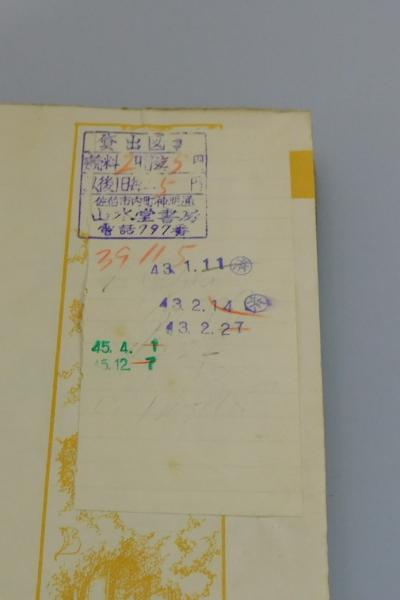 貸出図書
料2日迄5円
以後1日毎..5円
佐伯市内町神明通
山水堂書房
電話797番
39 11 5
43.1.11 済
43.2.14
43.2.27
45.4.1
45.12 7